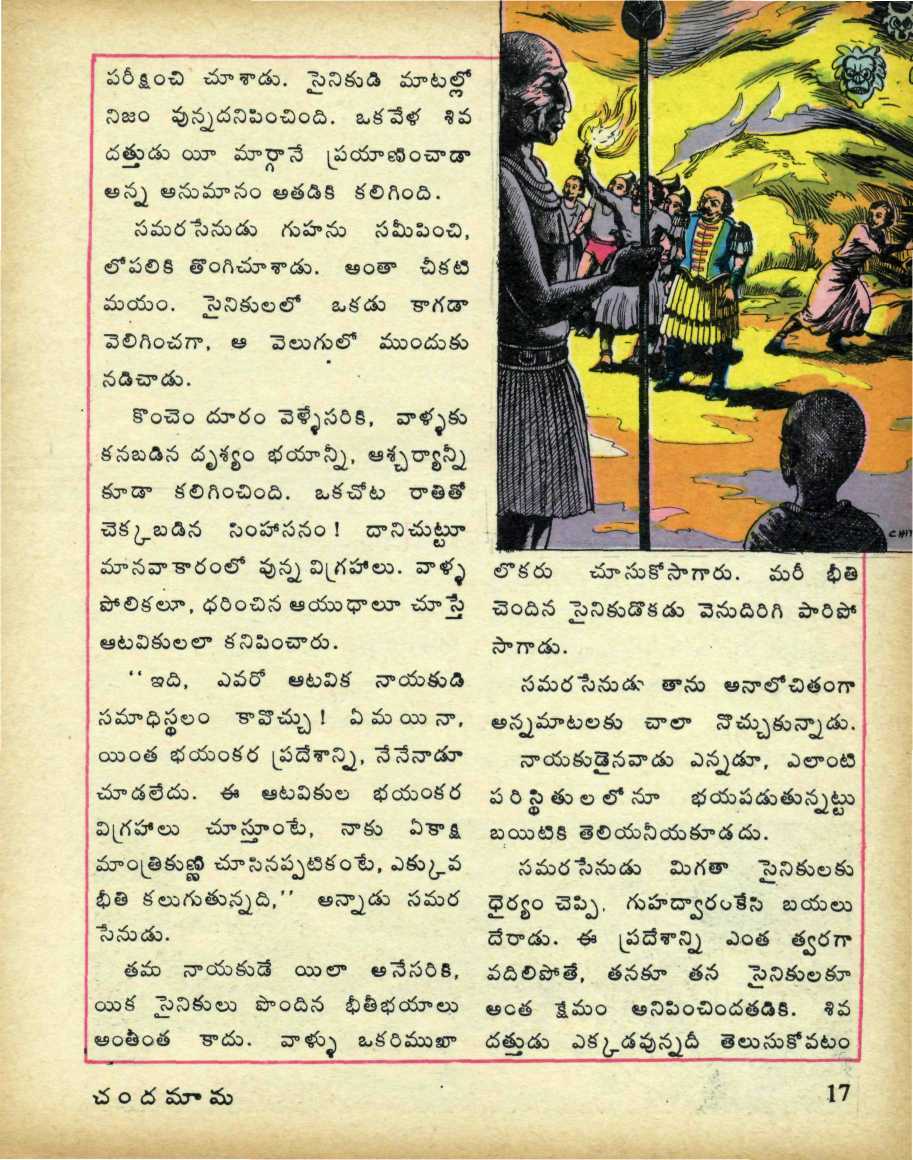 పరీక్షించి చూశాడు. సైనికుడి మాటల్లో
నిజం వున్నదనిపించింది. ఒకవేళ శివ
దత్తుడు యీ మార్గానే ప్రయాణించాడా
అన్న అనుమానం అతడికి కలిగింది.
సమరసేనుడు గుహను సమీపించి,
లోపలికి తొంగిచూశాడు. అంతా చీకటి
మయం. సైనికులలో ఒకడు కాగడా
వెలిగించగా, ఆ వెలుగులో ముందుకు
నడిచాడు.
కొంచెం దూరం వెళ్ళేసరికి, వాళ్ళకు
కనబడిన దృశ్యం భయాన్నీ, ఆశ్చర్యాన్నీ
కూడా కలిగించింది. ఒకచోట రాతితో
చెక్కబడిన సింహాసనం! దానిచుట్టూ
మానవాకారంలో వున్న విగ్రహాలు. వాళ్ళ
పోలికలూ, ధరించిన ఆయుధాలూ చూస్తే
ఆటవికులలా కనిపించారు.
‘‘ఇది, ఎవరో ఆటవిక నాయకుడి
సమాధిస్థలం కావొచ్చు! ఏమయినా,
యింత భయంకర ప్రదేశాన్ని, నేనేనాడూ
చూడలేదు. ఈ ఆటవికుల భయంకర
విగ్రహాలు చూస్తూంటే, నాకు ఏకాక్షి
మాంత్రికుణ్ణి చూసినప్పటికంటే, ఎక్కువ
భీతి కలుగుతున్నది,’’ అన్నాడు సమర
సేనుడు.
తమ నాయకుడే యిలా అనేసరికి,
యిక సైనికులు పొందిన భీతిభయాలు
అంతింత కాదు. వాళ్ళు ఒకరిముఖా
CHIT
లొకరు చూసుకోసాగారు. మరీ భీతి
చెందిన సైనికుడొకడు వెనుదిరిగి పారిపో
సాగాడు.
సమరసేనుడు తాను అనాలోచితంగా
అన్నమాటలకు చాలా నొచ్చుకున్నాడు.
నాయకుడైనవాడు ఎన్నడూ, ఎలాంటి
పరిస్థితులలోనూ భయపడుతున్నట్టు
బయిటికి తెలియనీయకూడదు.
సమరసేనుడు మిగతా సైనికులకు
ధైర్యం చెప్పి, గుహద్వారంకేసి బయలు
దేరాడు. ఈ ప్రదేశాన్ని ఎంత త్వరగా
వదిలిపోతే, తనకూ తన సైనికులకూ
అంత క్షేమం అనిపించిందతడికి. శివ
దత్తుడు ఎక్కడవున్నదీ తెలుసుకోవటం
చందమామ
17